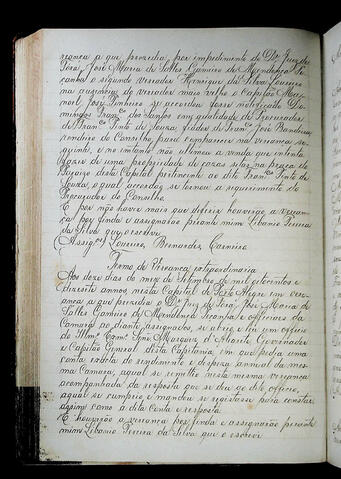 reança a que prezidio, por impedimento do Dr. Juiz de
Fora, José Maria de Salles Gameiro de Mendonça Pe
çanha o segundo vereador Henrique da Silva Loureiro
na auzencia do vereador mais velho o Capitão Ma
noel José Pinheiro se accordou fosse notificado Do
mingos Franco. dos Santos em qualidade de Procurador
de Franco. Pinto de Souza, fiador de Franco. José Bandeira
rendeiro do Concelho para comparecer na vereança se
guinte, e no entanto não ultimou a venda que intenta
fazer de uma propriedade de cazas sitas na praça do
desta Capital pertencente ao dito Franco. Pinto de
Souza, o qual accordão se tornou a requerimento do
Procurador do Conselho.
E por não haver mais que deferir houverão a verean
ça por finda e assignarão perante mim Libanio Pereira
da Silva que o escrevi
(Assigos.) Loureiro, Bernardes, Carneiro
Termo de Vereança extraordinaria
Aos doze dias do mez de Setembro de mil oitocentos e
dezoito annos nesta Capital de Porto Alegre em vere
ança a que prezidio o Dr. Juiz de Fora, José Maria de
Salles Gameiro de Mendonça Peçanha e officiaes da
Camara ao diante assignados, se abrio e leu um officio
do Illmo. Exmo. Snr. Marquez d'Alegrete Governador
e Capitão General desta Capitania, em que pedia uma
conta exacta do rendimento e despeza annual da mes
ma Camara, aqual se remetteu nesta mesma vereança
acompanhada da resposta que se deu ao dito officio,
aqual se cumprio e mandou se registasse para constar
assim como a dita Conta e resposta.
E houverão a vereança por finda e assignarão perante
mim Libanio Pereira da Silva que o escrevi